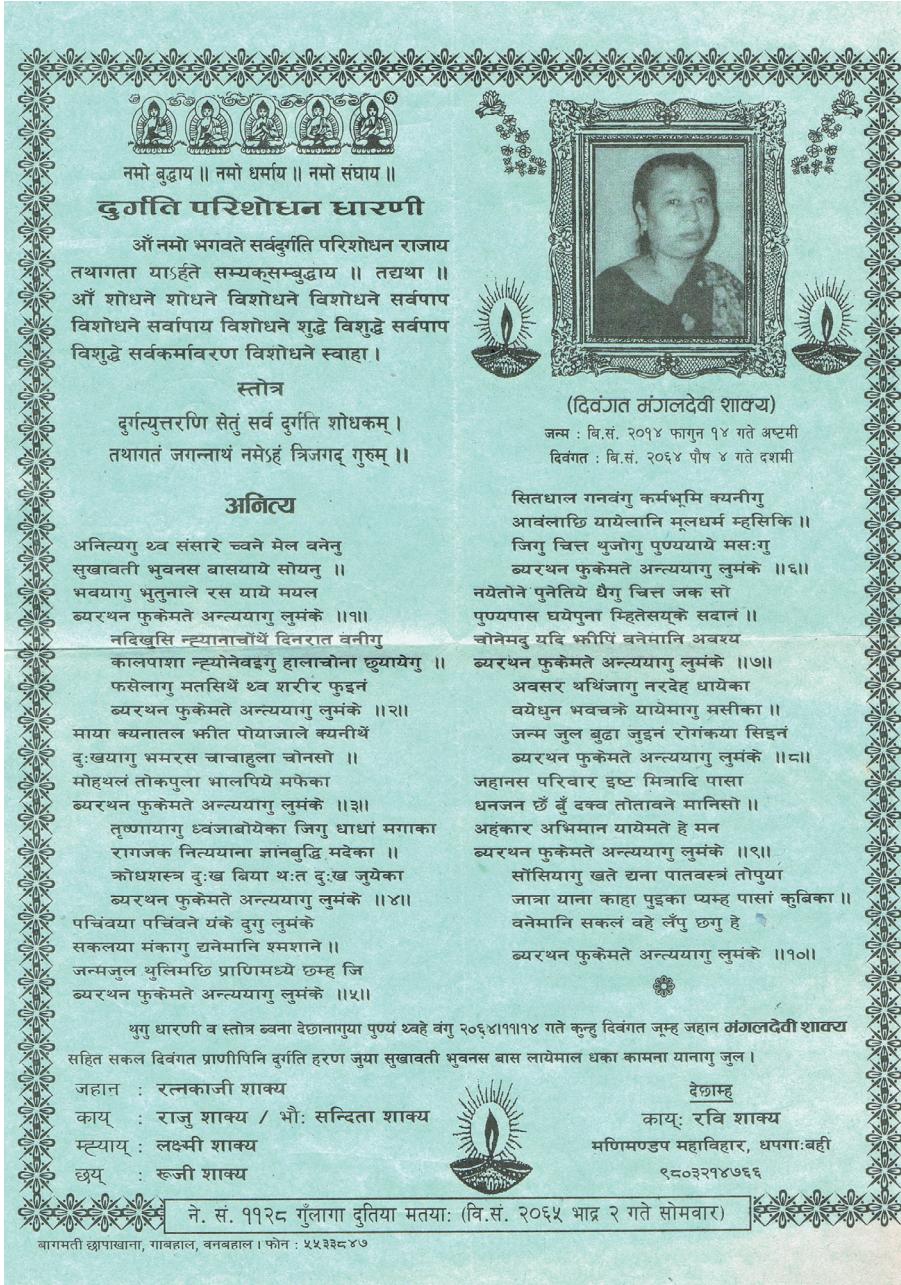 नमो बुद्धाय ॥ नमो धर्माय ॥ नमो संघाय ॥
दुर्गति परिशोधन धारणी
आँ नमो भगवते सर्वदुर्गति परिशोधन राजाय
तथागता याऽर्हते सम्यक्सम्बुद्धाय ॥ तद्यथा ॥
आँ शोधने शोधने विशोधने विशोधने सर्वपाप
विशोधने सर्वापाय विशोधने शुद्धे विशुद्धे सर्वपाप
विशुद्धे सर्वकर्मावरण विशोधने स्वाहा ।
स्तोत्र
दुर्गत्युत्तरणि सेतुं सर्व दुर्गति शोधकम् ।
तथागतं जगन्नाथं नमेऽहं त्रिजगद् गुरुम् ॥
(दिवंगत मंगलदेवी शाक्य)
जन्म : बि.सं. २०१४ फागुन १४ गते अष्टमी
दिवंगत : बि.सं. २०६४ पौष ४ गते दशमी
अनित्य
अनित्यगु थ्व संसारे च्वने मेल वनेनु
सुखावती भुवनस बासयाये सोयनु ॥
भवयागु भुतुनाले रस याये मयल
ब्यरथन फुकेमते अन्त्ययागु लुमंके ॥१॥
नदिखुसि न्ह्यानाचोंथें दिनरात वनीगु
कालपाशा न्ह्योनेवइगु हालाचोना छुयायेगु ॥
फसेलागु मतसिथें थ्व शरीर फुइनं
ब्यरथन फुकेमते अन्त्ययागु लुमंके ॥२॥
माया क्यनातल झीत पोयाजाले क्यनीथें
दुःखयागु भमरस चाचाहुला चोनसो ॥
मोहथलं तोकपुला भालपिये मफेका
ब्यरथन फुकेमते अन्त्ययागु लुमंके ॥३॥
तृष्णायागु ध्वंजाबोयेका जिगु धाधां मगाका
रागजक नित्ययाना ज्ञानबुद्धि मदेका ॥
क्रोधशस्त्र दुःख बिया थःत दुःख जुयेका
ब्यरथन फुकेमते अन्त्ययागु लुमंके ॥४॥
पचिंवया पचिंवने यंके दुगु लुमंके
सकलया मंकागु द्यनेमानि श्मशाने ॥
जन्मजुल थुलिमछि प्राणिमध्ये छम्ह जि
ब्यरथन फुकेमते अन्त्ययागु लुमंके ॥५॥
सितधाल गनवंगु कर्मभूमि क्यनीगु
आवंलाछि यायेलानि मूलधर्म म्हसिकि ॥
जिगु चित्त थुजोगु पुण्ययाये मसःगु
ब्यरथन फुकेमते अन्त्ययागु लुमंके ॥६॥
नयेतोने पुनेतिये धैगु चित्त जक सो
पुण्यपास घयेपुना म्हितेसयके सदानं ॥
चोनेमदु यदि झीपिं वनेमानि अवश्य
ब्यरथन फुकेमते अन्त्ययागु लुमंके ॥७॥
अवसर थथिंजागु नरदेह धायेका
वयेधुन भवचक्रे यायेमागु मसीका ॥
जन्म जुल बुढा जुइनं रोगंकया सिइनं
ब्यरथन फुकेमते अन्त्ययागु लुमंके ॥८॥
जहानस परिवार इष्ट मित्रादि पासा
धनजन छेँ बुँ दक्व तोतावने मानिसो ॥
अहंकार अभिमान यायेमते हे मन
ब्यरथन फुकेमते अन्त्ययागु लुमंके ॥९॥
सोंसियागु खते द्यना पातवस्त्रं तोपुया
जात्रा याना काहा पुइका प्यम्ह पासां कुबिका ॥
वनेमानि सकलं वहे लँपु छगु हे
ब्यरथन फुकेमते अन्त्ययागु लुमंके ॥१०॥
थुगु धारणी व स्तोत्र ब्वना देछानागुया पुण्यं थ्वहे वंगु २०६४।११।१४ गते कुन्हु दिवंगत जूम्ह जहान मंगलदेवी शाक्य
सहित सकल दिवंगत प्राणीपिनि दुर्गति हरण जुया सुखावती भुवनस बास लायेमाल धका कामना यानागु जुल ।
जहान : रत्नकाजी शाक्य
काय् : राजु शाक्य / भौः सन्दिता शाक्य
म्ह्याय् : लक्ष्मी शाक्य
छय् : रूजी शाक्य
देछाम्ह
काय्ः रवि शाक्य
मणिमण्डप महाविहार, धपगाःबही
९८०३२१४७६६
ने. सं. ११२८ गुँलागा दुतिया मतयाः (वि.सं. २०६५ भाद्र २ गते सोमवार)
बागमती छापाखाना, गाबहाल, वनबहाल । फोन : ५५३३८४७